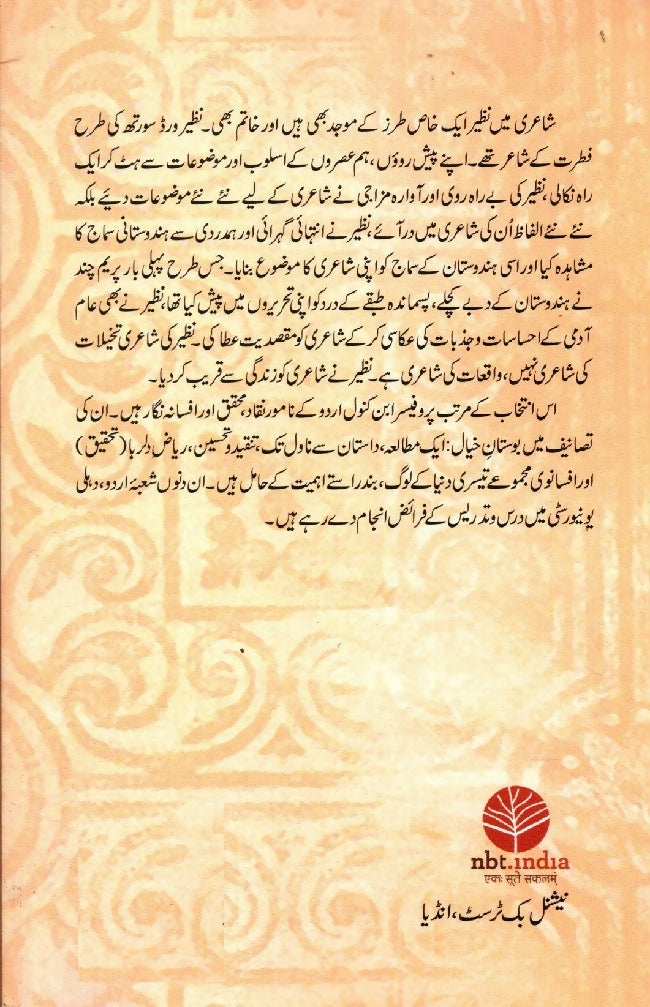 شاعری میں نظیر ایک خاص طرز کے موجد بھی ہیں اور خاتم بھی۔ نظیر ورڈسورتھ کی طرح
فطرت کے شاعر تھے۔ اپنے پیش روؤں، ہم عصروں کے اسلوب اور موضوعات سے ہٹ کر ایک
راہ نکالی، نظیر کی بے راہ روی اور آوارہ مزاجی نے شاعری کے لیے نئے نئے موضوعات دیئے بلکہ
نئے نئے الفاظ اُن کی شاعری میں در آئے، نظیر نے انتہائی گہرائی اور ہمدردی سے ہندوستانی سماج کا
مشاہدہ کیا اور اسی ہندوستان کے سماج کو اپنی شاعری کا موضوع بنایا۔ جس طرح پہلی بار پریم چند
نے ہندوستان کے دبے کچلے، پسماندہ طبقے کے درد کو اپنی تحریروں میں پیش کیا تھا، نظیر نے بھی عام
آدمی کے احساسات و جذبات کی عکاسی کر کے شاعری کو مقصدیت عطا کی۔ نظیر کی شاعری تخیلات
کی شاعری نہیں، واقعات کی شاعری ہے۔ نظیر نے شاعری کو زندگی سے قریب کر دیا۔
اس انتخاب کے مرتب پروفیسر ابن کنول اردو کے نامور نقاد، محقق اور افسانہ نگار ہیں۔ ان کی
تصانیف میں بوستانِ خیال: ایک مطالعہ، داستان سے ناول تک، تنقید و تحسین، ریاض دلربا (تحقیق)
اور افسانوی مجموعے تیسری دنیا کے لوگ، بند راستے اہمیت کے حامل ہیں۔ ان دنوں شعبۂ اردو، دہلی
یونیورسٹی میں درس و تدریس کے فرائض انجام دے رہے ہیں۔
nbt.india
एकः सूते सकलम्
نیشنل بک ٹرسٹ، انڈیا